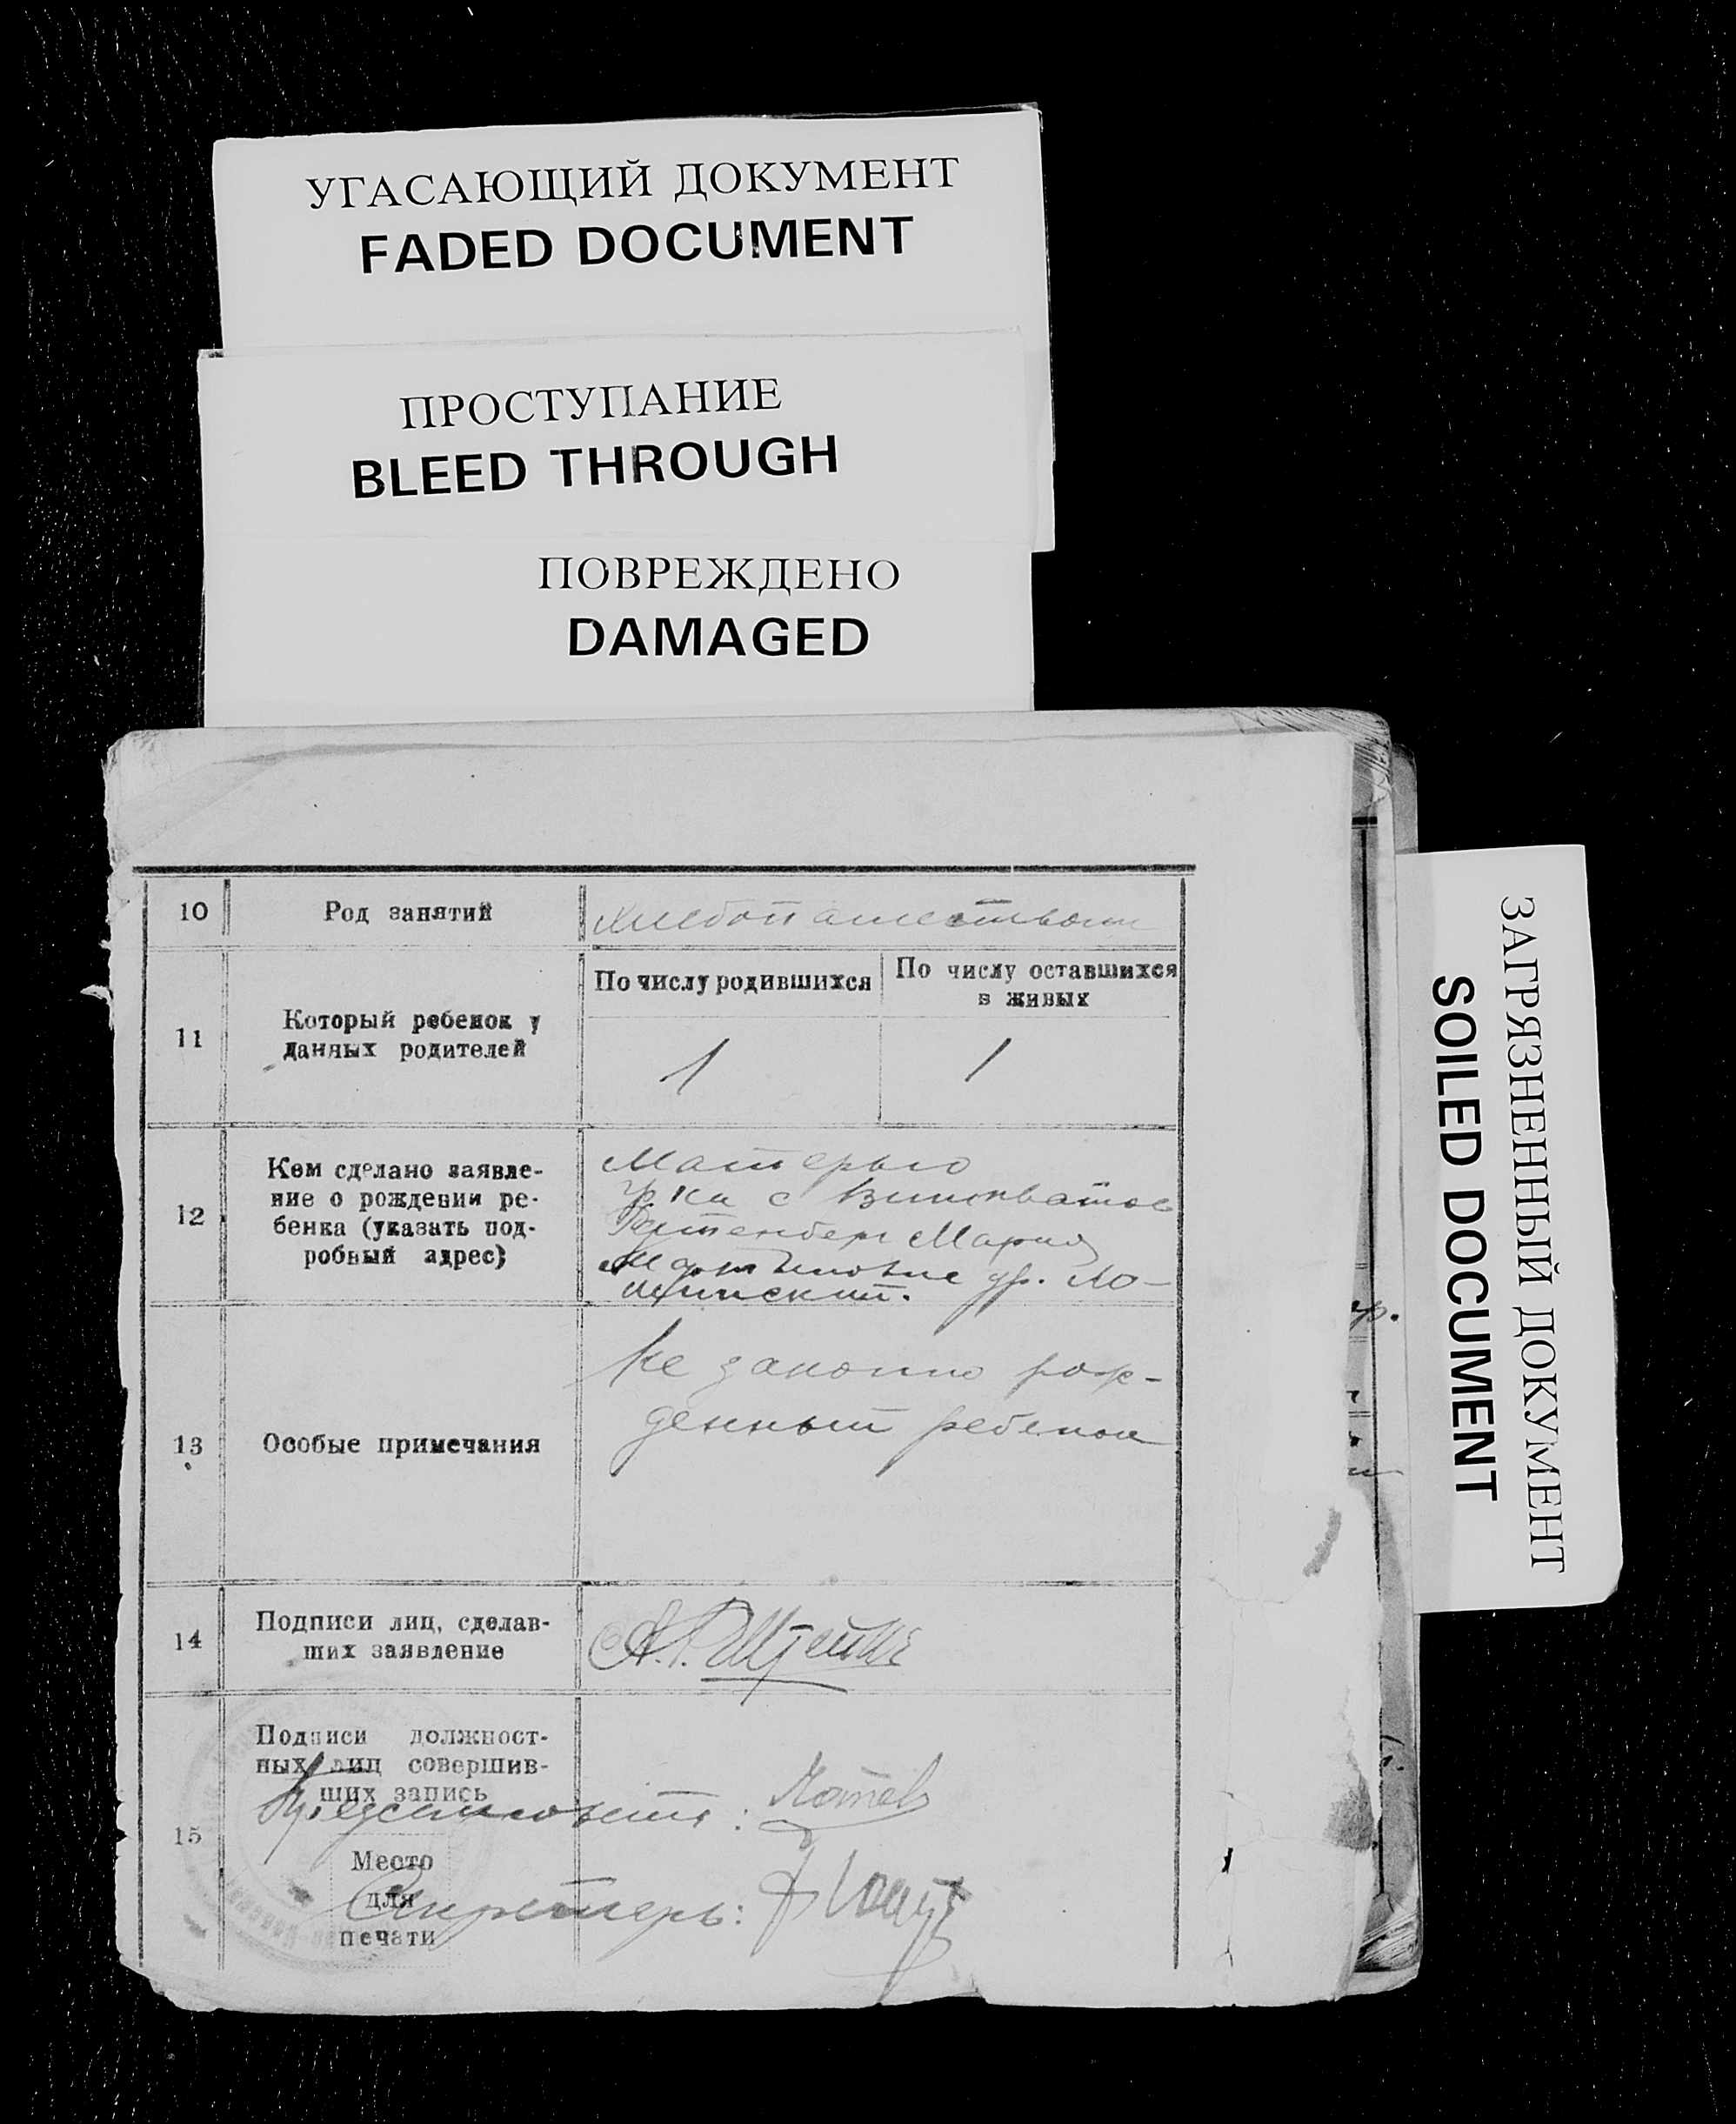 УГАСАЮЩИЙ ДОКУМЕНТ
FADED DOCUMENT
ПРОСТУПАНИЕ
BLEED THROUGH
ПОВРЕЖДЕНО
DAMAGED
ЗАГРЯЗНЕННЫЙ ДОКУМЕНТ
SOILED DOCUMENT
10
Род занятий
Хлебопашеством
11
Который ребенок у
данных родителей
По числу родившихся
По числу оставшихся
в живых
1
1
12
Кем сделано заявле-
ние о рождении ре-
бенка (указать под-
робный адрес)
Матерью
гр-ка с
Мария
13
Особые примечания
Не законно рож-
денный ребенок
14
Подписи лиц, сделав-
ших заявление
15
Подписи должност-
ных лиц совершив-
ших запись
Место
для
печати
Секретарь: